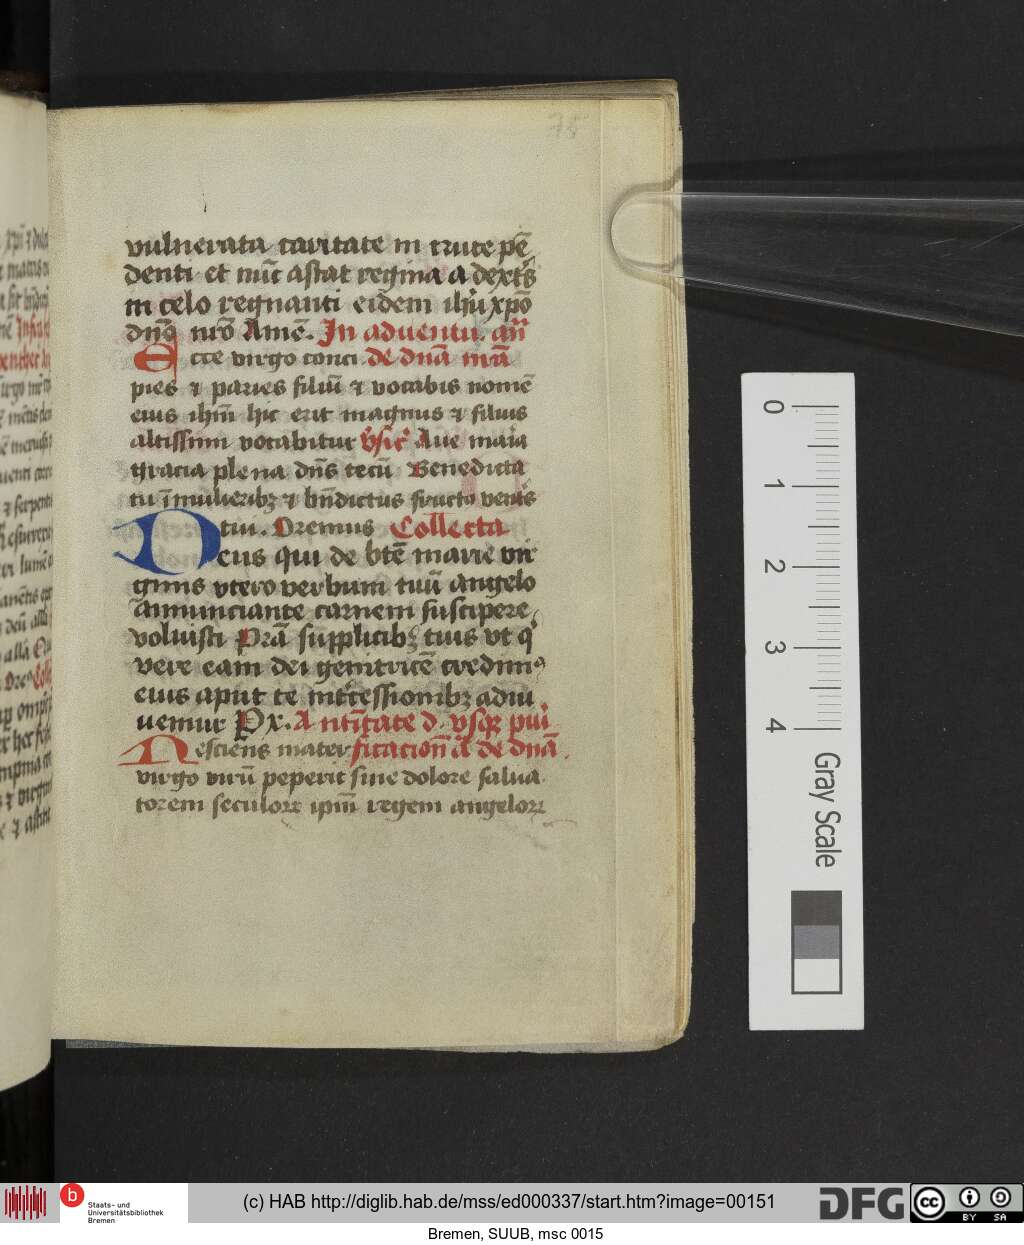 75
vulnerata caritate in cruce pē
denti et nūc astat regina a dextˢ
in celo regnanti eidem ihū xpō
dnō nrō Amē. In aduentu. an̄
Ecce virgo conci de dnā n̄rā
pies ⁊ paries filiū ⁊ vocabis nomē
eius ihm̄ hic erit magnus ⁊ filius
altissimi vocabitur v̓sic̓ Aue maīa
gracia plena dn̄s tecū Benedicta
tu ī mulieribꝫ ⁊ bn̄dictus fructꝰ ventˢ
tui. Oremus Collecta
Deus qui de btē marie vir
ginis vtero verbum tuū angelo
annunciante carnem suscipere
voluisti Prā supplicibꝫ tuis vt q̓
vere eam dei genitricē credimꝰ
eius aput te int̓cessionibꝫ adiu
uemur P x. A nt̄itate d. vsqꝫ puī
Nesciens mater ficacion̄ ā de dnā.
virgo virū peperit sine dolore salua
torem seculoꝝ ipm̄ regem angeloꝝ
0
1
2
3
4
Gray Scale
b
Staats- und
Universitätsbibliothek
Bremen
(c) HAB http://diglib.hab.de/mss/ed000337/start.htm?image=00151
DFG
cc
BY SA
Bremen, SUUB, msc 0015